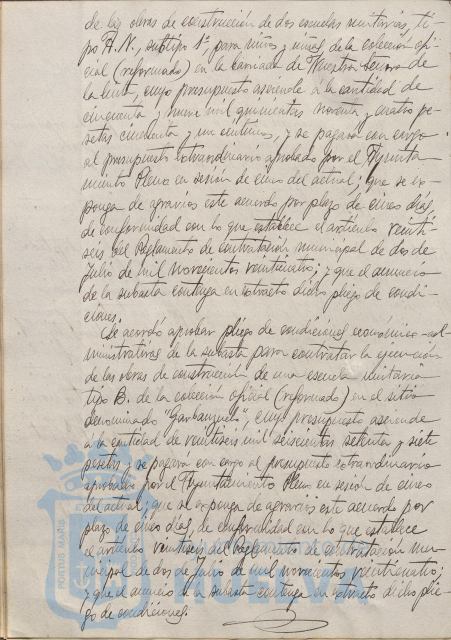 de las obras de construcción de dos escuelas unitarias, ti-
po A.N., subtipo 1º, para niños y niñas de la colección ofi-
cial (reformado) en la barriada de Nuestra Señora de
la Cinta, cuyo presupuesto asciende a la cantidad de
cincuenta y nueve mil quinientas noventa y cuatro pe-
setas cincuenta y un céntimos, y se pagará con cargo
al presupuesto extraordinario aprobado por el Ayunta-
miento Pleno en sesión de cinco del actual; que se ex-
ponga de agravios este acuerdo por plazo de cinco días,
de conformidad con lo que establece el artículo veinti-
seis del Reglamento de contratación municipal de dos de
Julio de mil novecientos veinticuatro; y que el anuncio
de la subasta contenga en extracto dicho pliego de condi-
ciones.
Se acordó aprobar pliego de condiciones económico-ad-
ministrativas de la subasta para contratar la ejecución
de las obras de construcción de una escuela unitaria
tipo B. de la colección oficial (reformado) en el sitio
denominado "Garbanzuelo", cuyo presupuesto asciende
a la cantidad de veintiseis mil seiscientas setenta y siete
pesetas y se pagará con cargo al presupuesto extraordinario
aprobado por el Ayuntamiento Pleno en sesión de cinco
del actual; que se exponga de agravios este acuerdo por
plazo de cinco días, de conformidad con lo que establece
el artículo veintiseis del Reglamento de contratación mu-
nicipal de dos de Julio de mil novecientos veinticuatro;
y que el anuncio de la subasta contenga en extracto dicho plie-
go de condiciones.
PORTUS MARIS